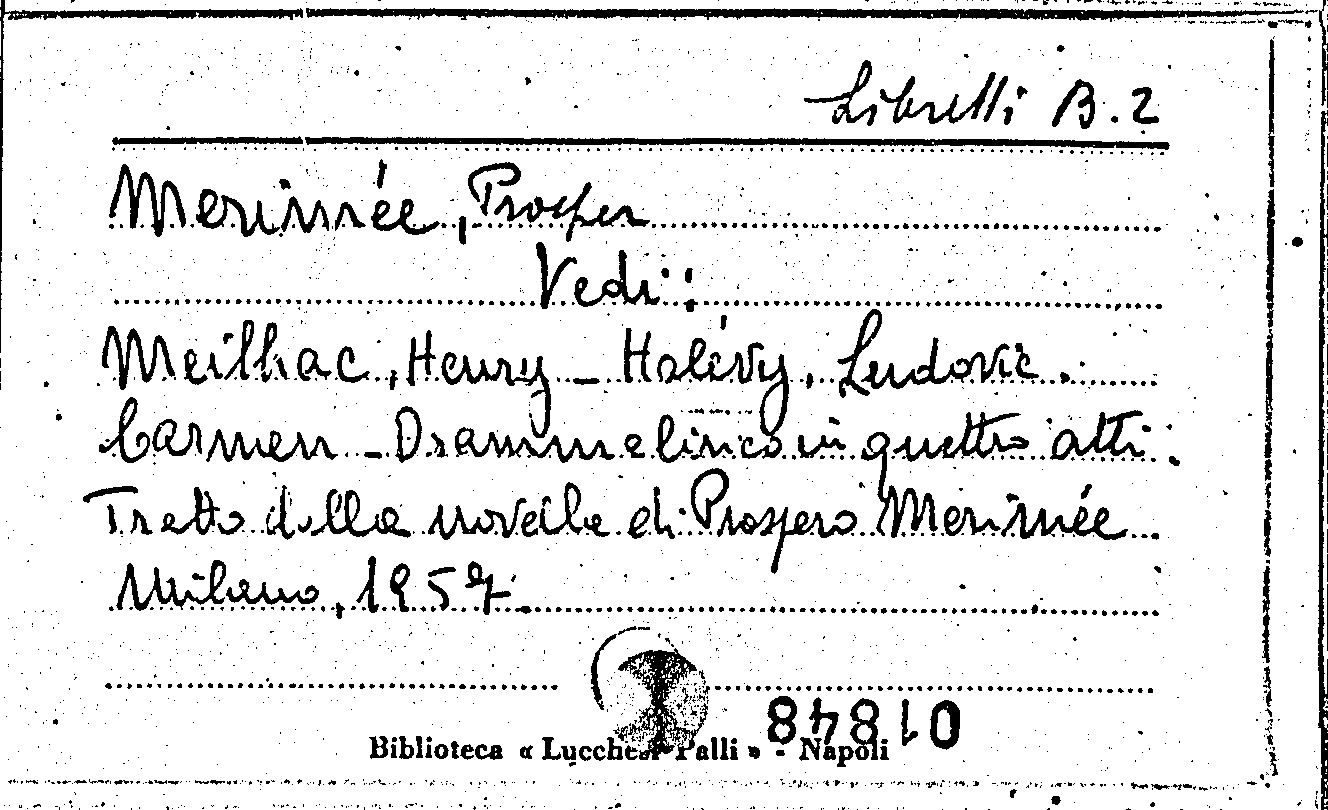 Libretti B.2
Merimée, Prosper
Vedi:
Meilhac, Henry - Halévy, Ludovic.
Carmen - Dramma lirico in quattro atti.
Tratto dalla novella di Prospero Merimée
Milano, 1957.
01848
Biblioteca « Lucchesi Palli » - Napoli